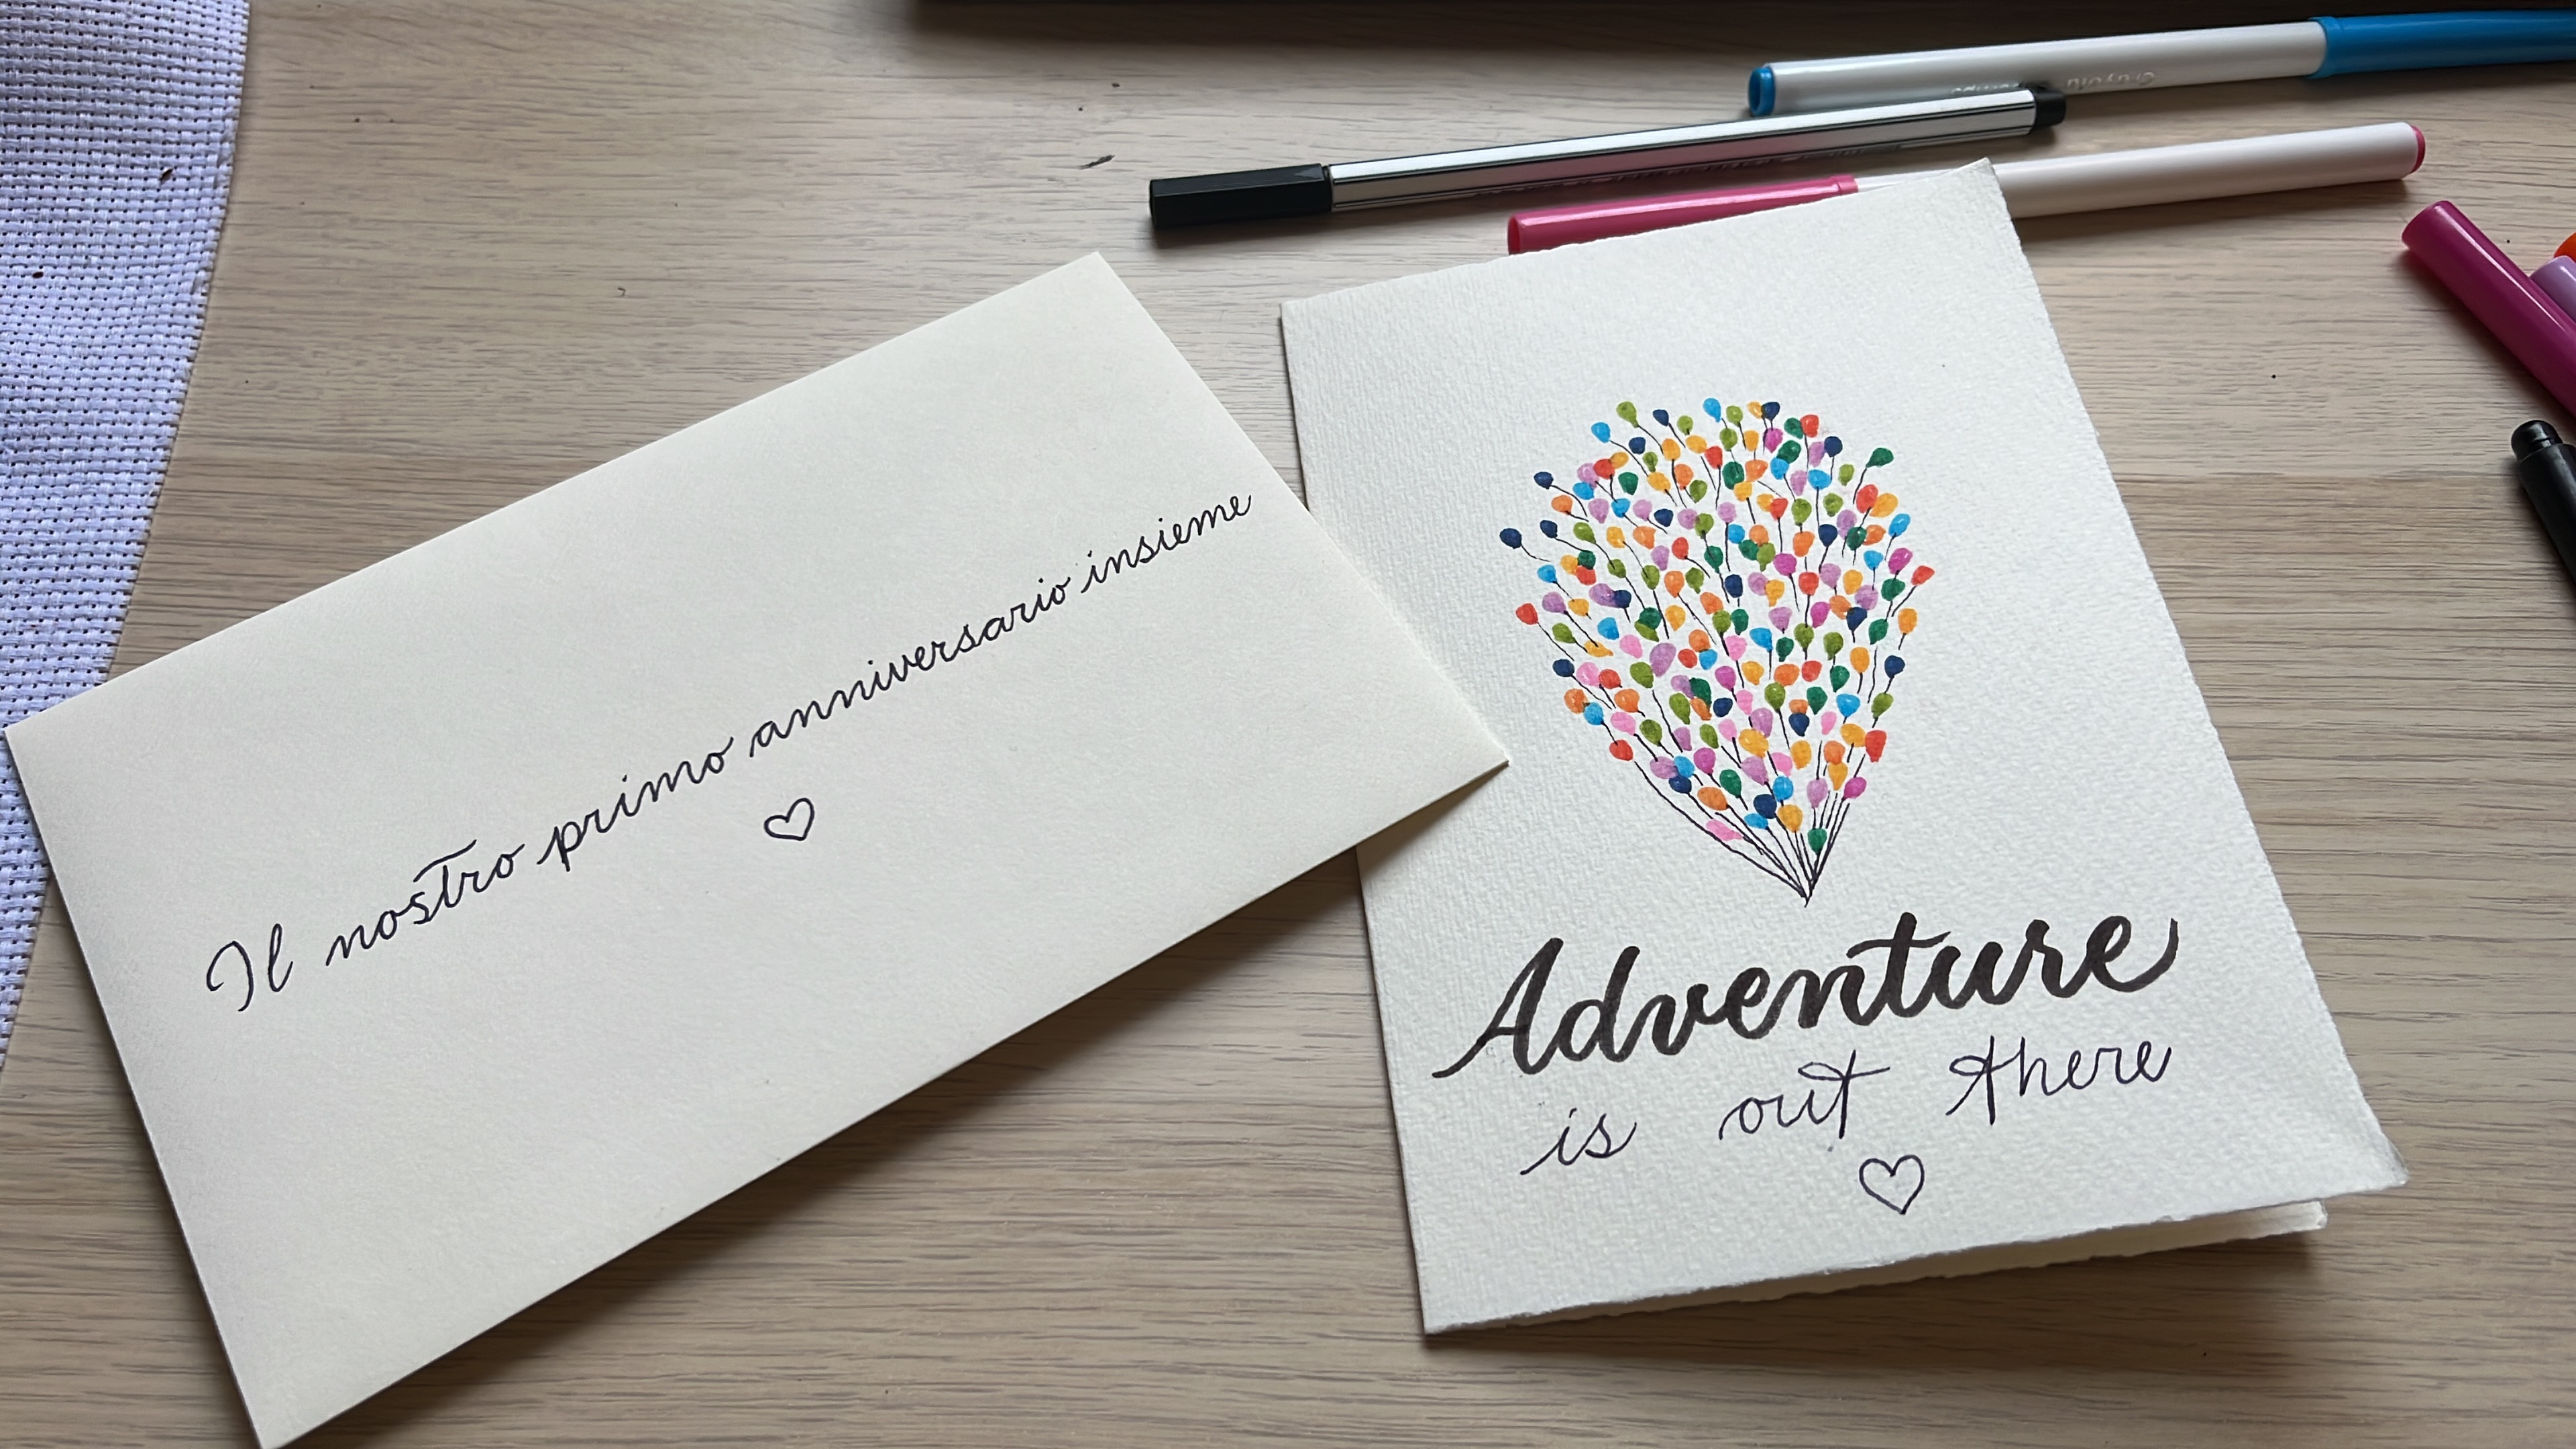 Il nostro primo anniversario insieme
Adventure
is out there
Crayola